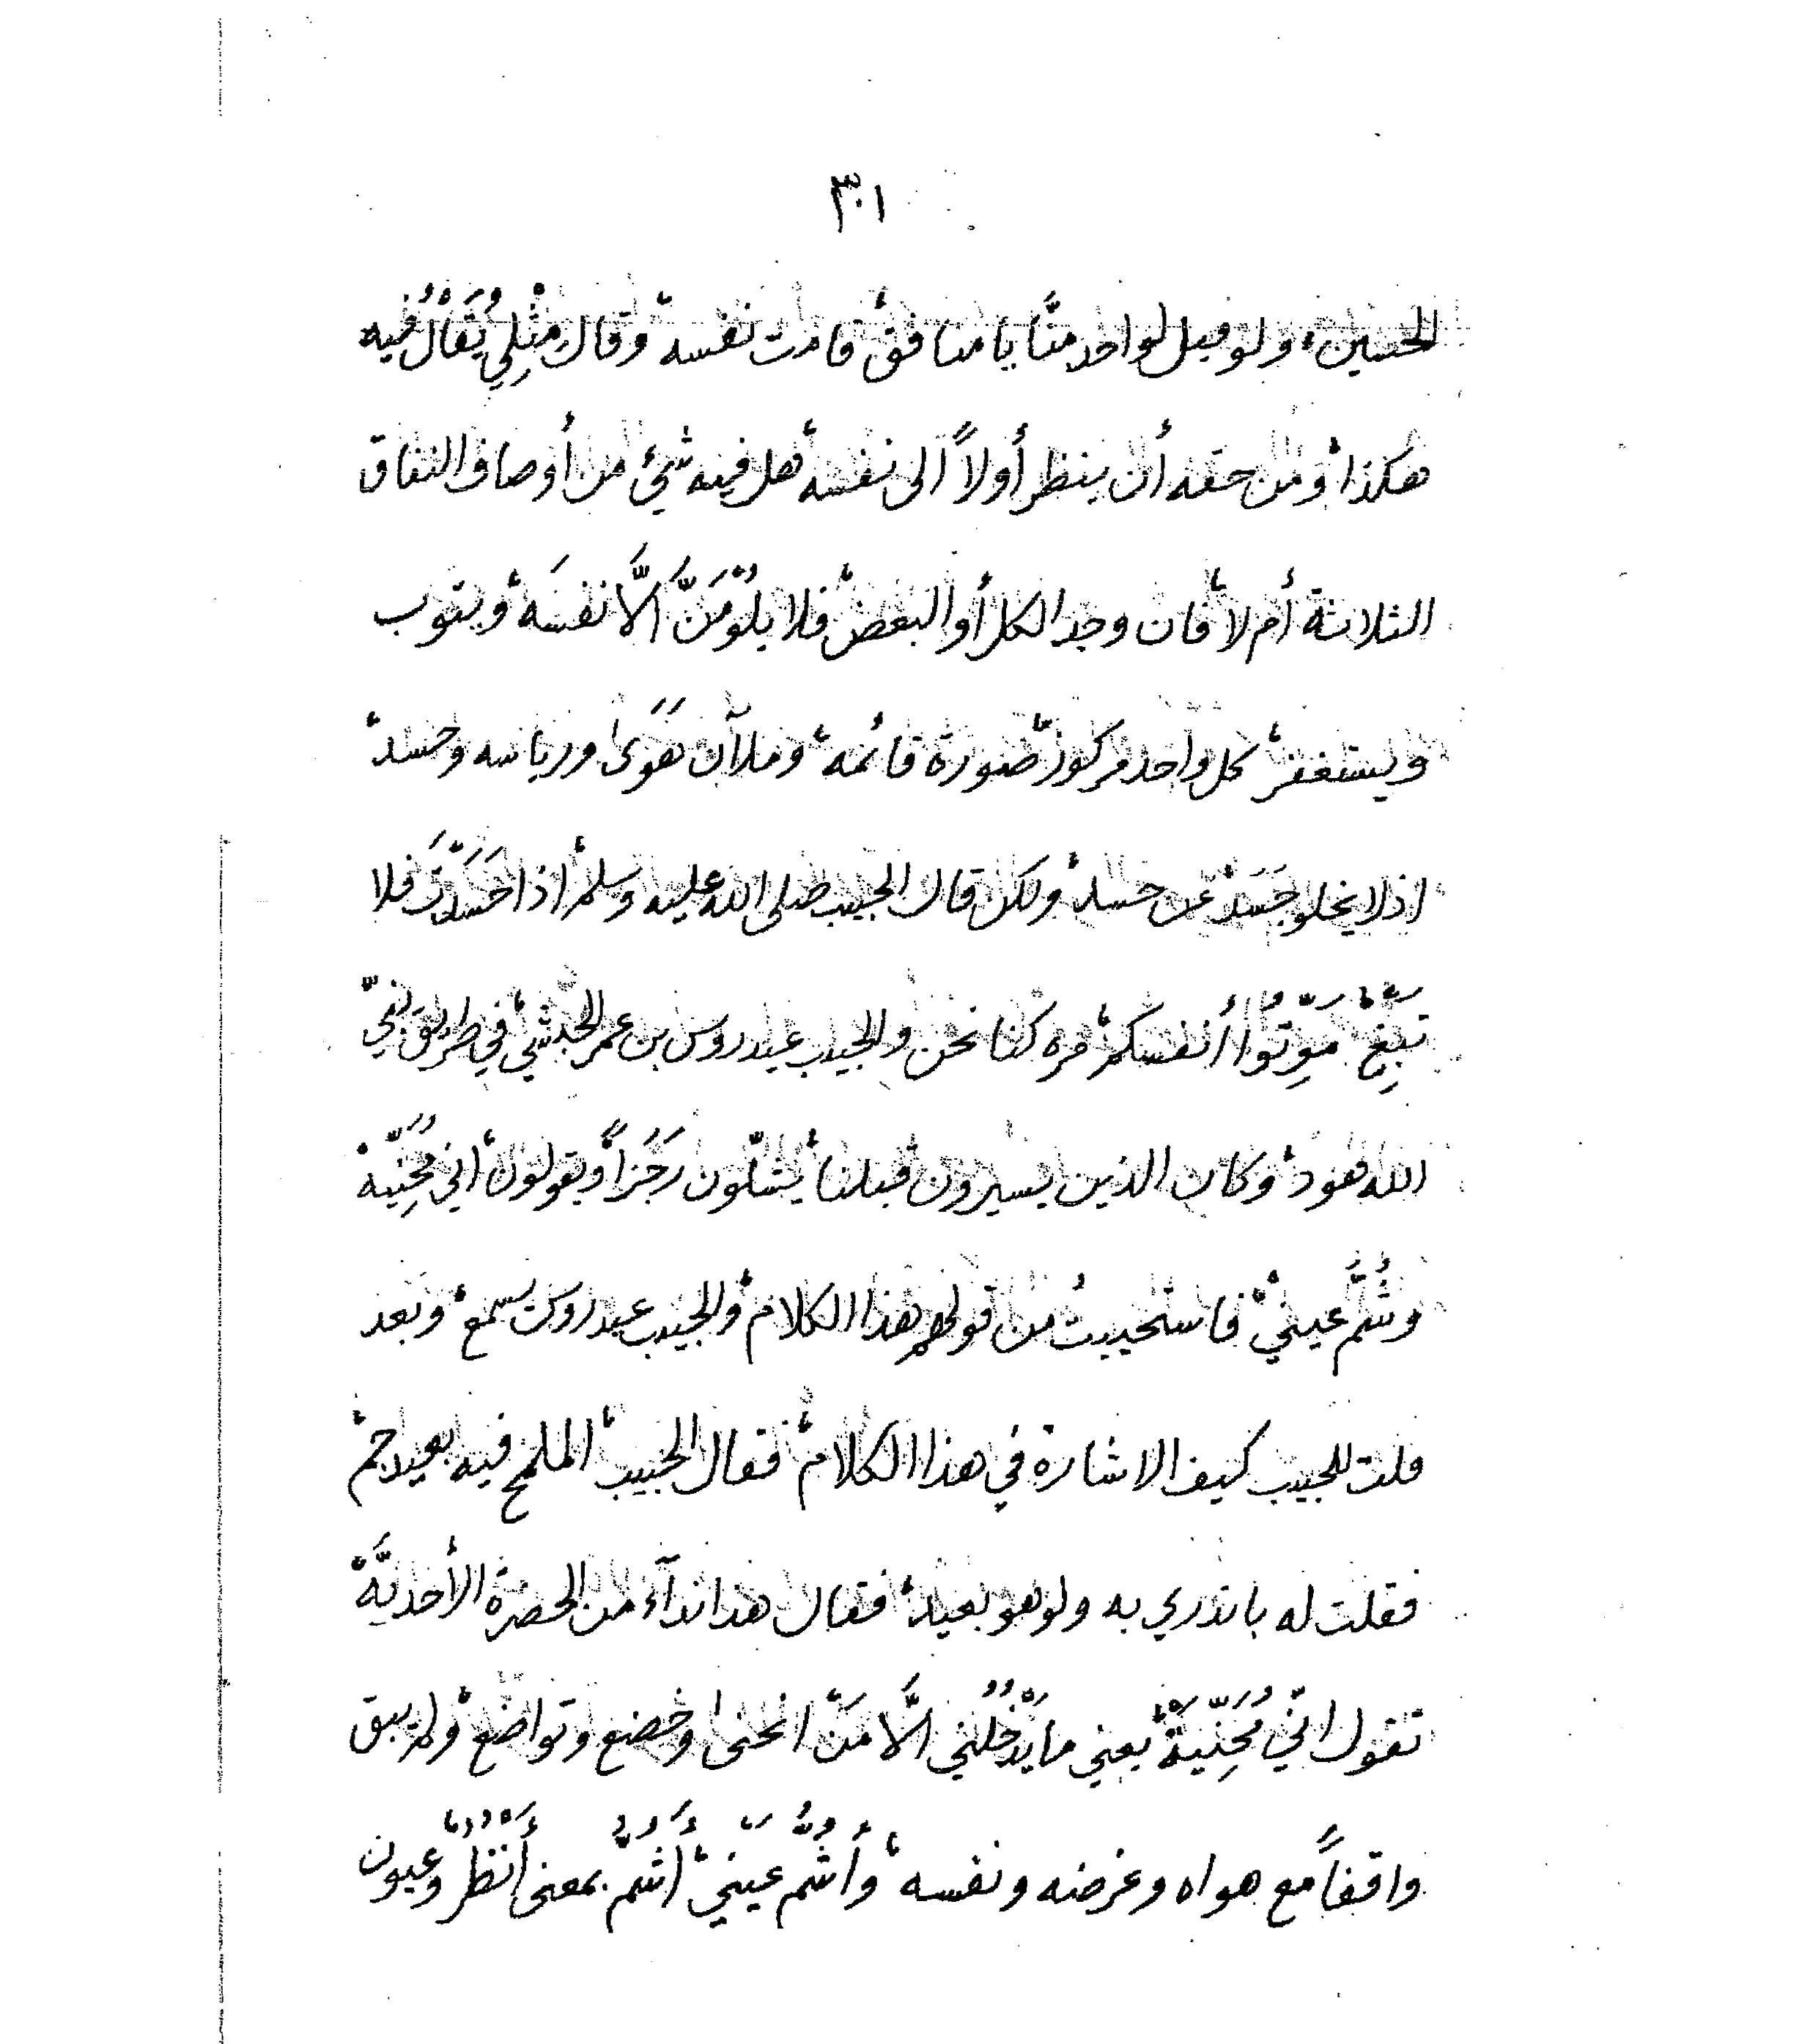 ٣٠١
الحسين، ولو قيل لواحد منَّا يا منافق، قامت نفسه، وقال مِثْلِي يُقَالْ فيه
هكذا، ومن حقه أن ينظر أولاً الى نفسه، هل فيه شيئ من أوصاف النفاق
الثلاثة أم لا، فان وجد الكل أو البعض، فلا يلُوْمَنَّ الَّا نفسَه، ويتوب
ويستغفر، كل واحد مركوز، صورة قائمه، وملآن هَوَىً ورياسه وحسد،
اذ لا يخلو جَسَدْ عن حسد، ولكن قال الحبيب صلى الله عليه وسلم، اذا حَسَدْتَ فلا
تَبْغِ، مَوِّتُوا أنفسكم، مره كنا نحن والحبيب عيدروس بن عمر الحبشي، في طريق نبيّ
الله هود، وكان الذين يسيرون قبلنا، يشلّون رَجَزاً، ويقولون، اني مُحَنِّيَهْ
وشُمَّ عيني، فاستحييتُ من قولهم هذا الكلام، والحبيب عيدروس يسمع، وبَعد
قلت للحبيب كيف الاشارة في هذا الكلام، فقال الحبيب، الملمح فيه بعيد جم،
فقلت له باندري به ولو هو بعيد، فقال هذا ندآء من الحضرة الأحديَّة،
تقول انّي مُحَنِّيَةْ، يعني ما يَدْخُلُني الَّا مَنْ انحنى وخضع وتواضع، ولم يبق
واقفاً مع هواه وغرضه ونفسه، وأشُمُّ عَيْني، أَشُمُّ بمعنى أَنْظُرُ، وعيون